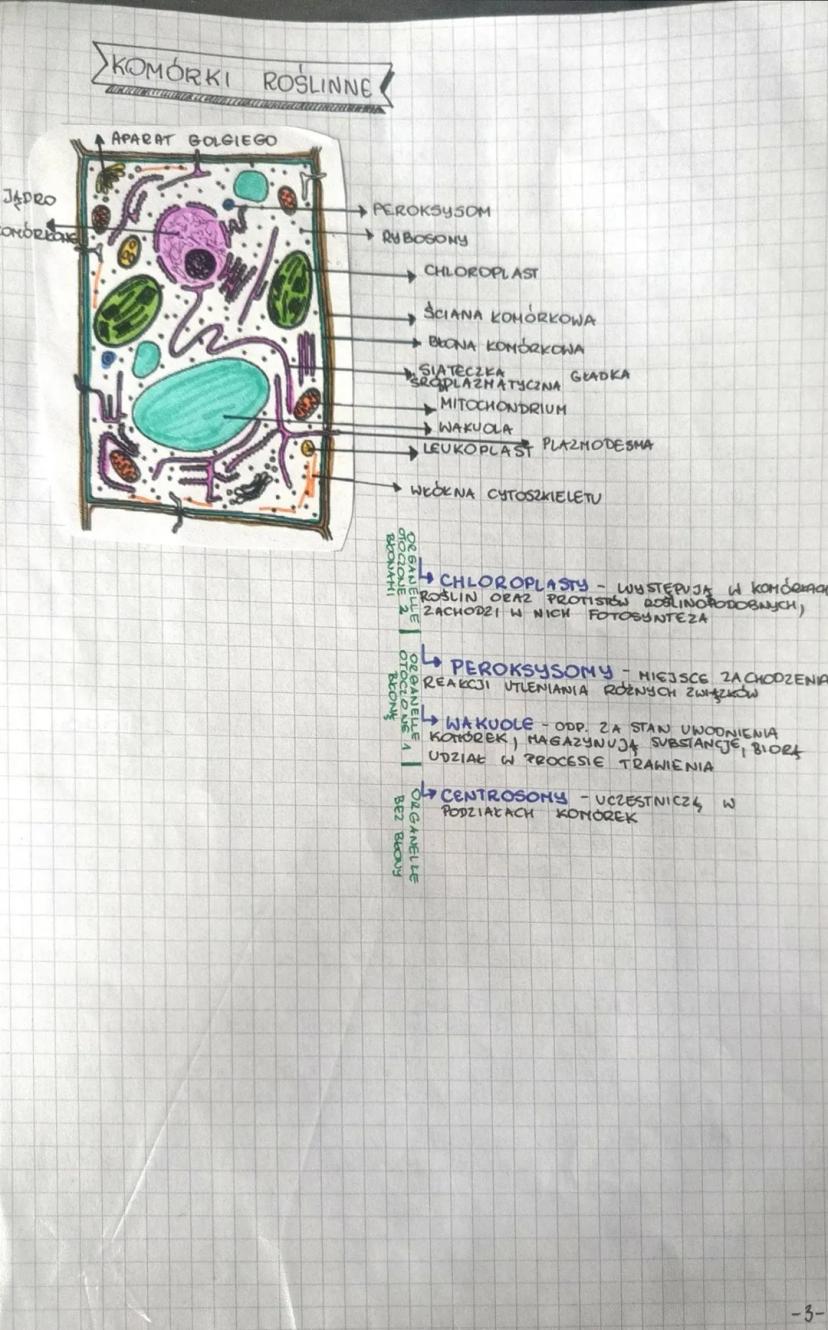 KOMÓRKI ROŚLINNE
APARAT GOLGIEGO
JĄDRO
PEROKSYSOM
RYBOSOMY
CHLOROPLAST
ŚCIANA KOMÓRKOWA
BŁONA KOMÓRKOWA
SIATECZKA GŁADKA
ŚRÓDPLAZMATYCZNA
MITOCHONDRIUM
WAKUOLA
LEUKOPLAST PLAZMODESMA
WŁÓKNA CYTOSZKIELETU
ORGANELLE
OTOCZONE 2
BŁONAMI
CHLOROPLASTY - WYSTĘPUJĄ W KOMÓRKACH
ROŚLIN ORAZ PROTISTÓW ROŚLINOPODOBNYCH,
ZACHODZI W NICH FOTOSYNTEZA
ORGANELLE
OTOCZONE 1
BŁONĄ
PEROKSYSOMY - MIEJSCE ZACHODZENIA
REAKCJI UTLENIANIA RÓŻNYCH ZWIĄZKÓW
WAKUOLE - ODP. ZA STAN UWODNIENIA
KOMÓREK, MAGAZYNUJĄ SUBSTANCJE, BIORĄ
UDZIAŁ W PROCESIE TRAWIENIA
ORGANELLE
BEZ BŁONY
CENTROSOMY - UCZESTNICZĄ W
PODZIAŁACH KOMÓREK
-3-